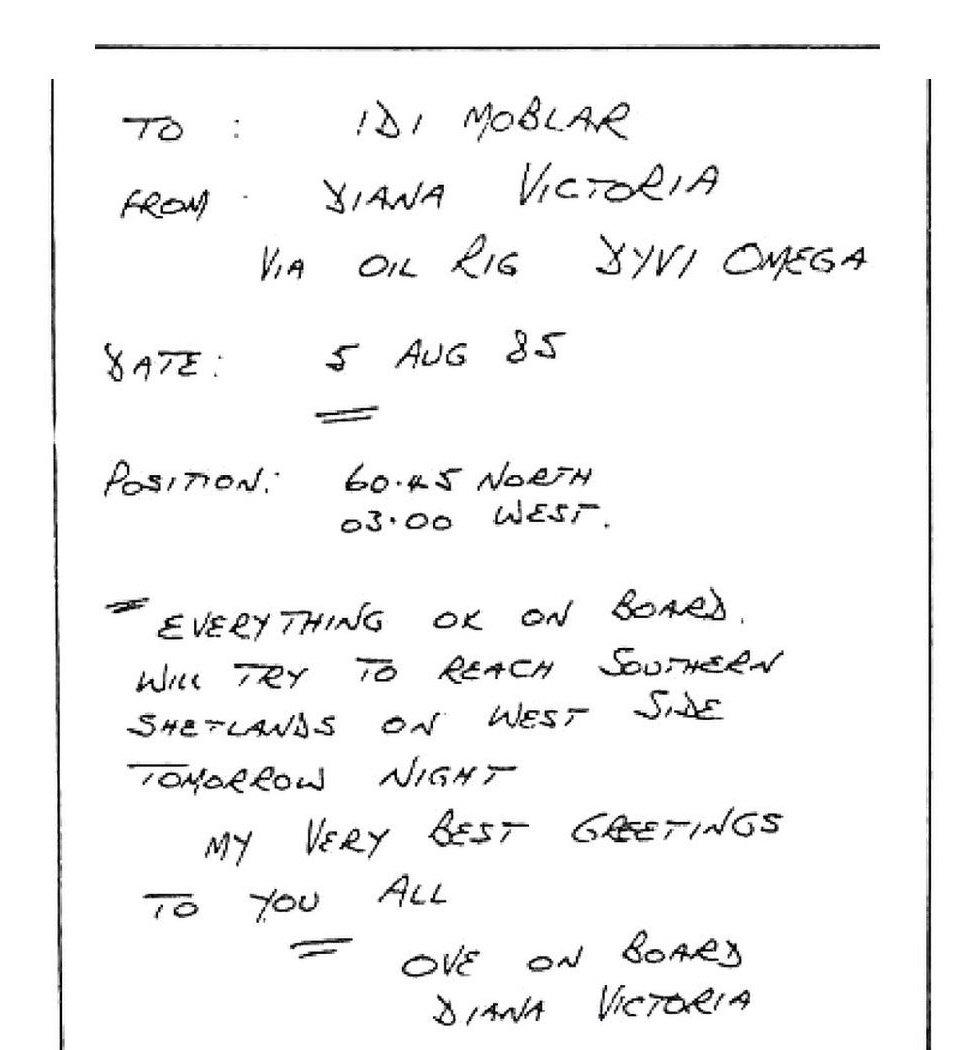 TO : IDI MOBLAR
FROM : DIANA VICTORIA
VIA OIL RIG DYVI OMEGA
DATE: 5 AUG 85
POSITION: 60.45 NORTH
03.00 WEST.
= EVERYTHING OK ON BOARD.
WILL TRY TO REACH SOUTHERN
SHETLANDS ON WEST SIDE
TOMORROW NIGHT
MY VERY BEST GREETINGS
TO YOU ALL
= OVE ON BOARD
DIANA VICTORIA